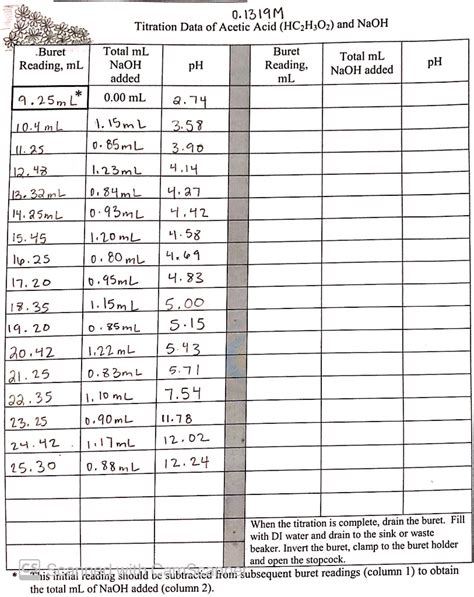 0.1319M
Titration Data of Acetic Acid (HC₂H₃O₂) and NaOH
.Buret Reading, mL | Total mL NaOH added | pH | Buret Reading, mL | Total mL NaOH added | pH
9.25mL* | 0.00 mL | 2.74
10.4 mL | 1.15mL | 3.58
11.25 | 0.85mL | 3.90
12.48 | 1.23mL | 4.14
13.32mL | 0.84mL | 4.27
14.25mL | 0.93mL | 4.42
15.45 | 1.20mL | 4.58
16.25 | 0.80mL | 4.69
17.20 | 0.95mL | 4.83
18.35 | 1.15mL | 5.00
19.20 | 0.85mL | 5.15
20.42 | 1.22mL | 5.43
21.25 | 0.83mL | 5.71
22.35 | 1.10mL | 7.54
23.25 | 0.90mL | 11.78
24.42 | 1.17mL | 12.02
25.30 | 0.88mL | 12.24
When the titration is complete, drain the buret. Fill
with DI water and drain to the sink or waste
beaker. Invert the buret, clamp to the buret holder
and open the stopcock.
CS Scanned with CamScanner
* This initial reading should be subtracted from subsequent buret readings (column 1) to obtain
the total mL of NaOH added (column 2).